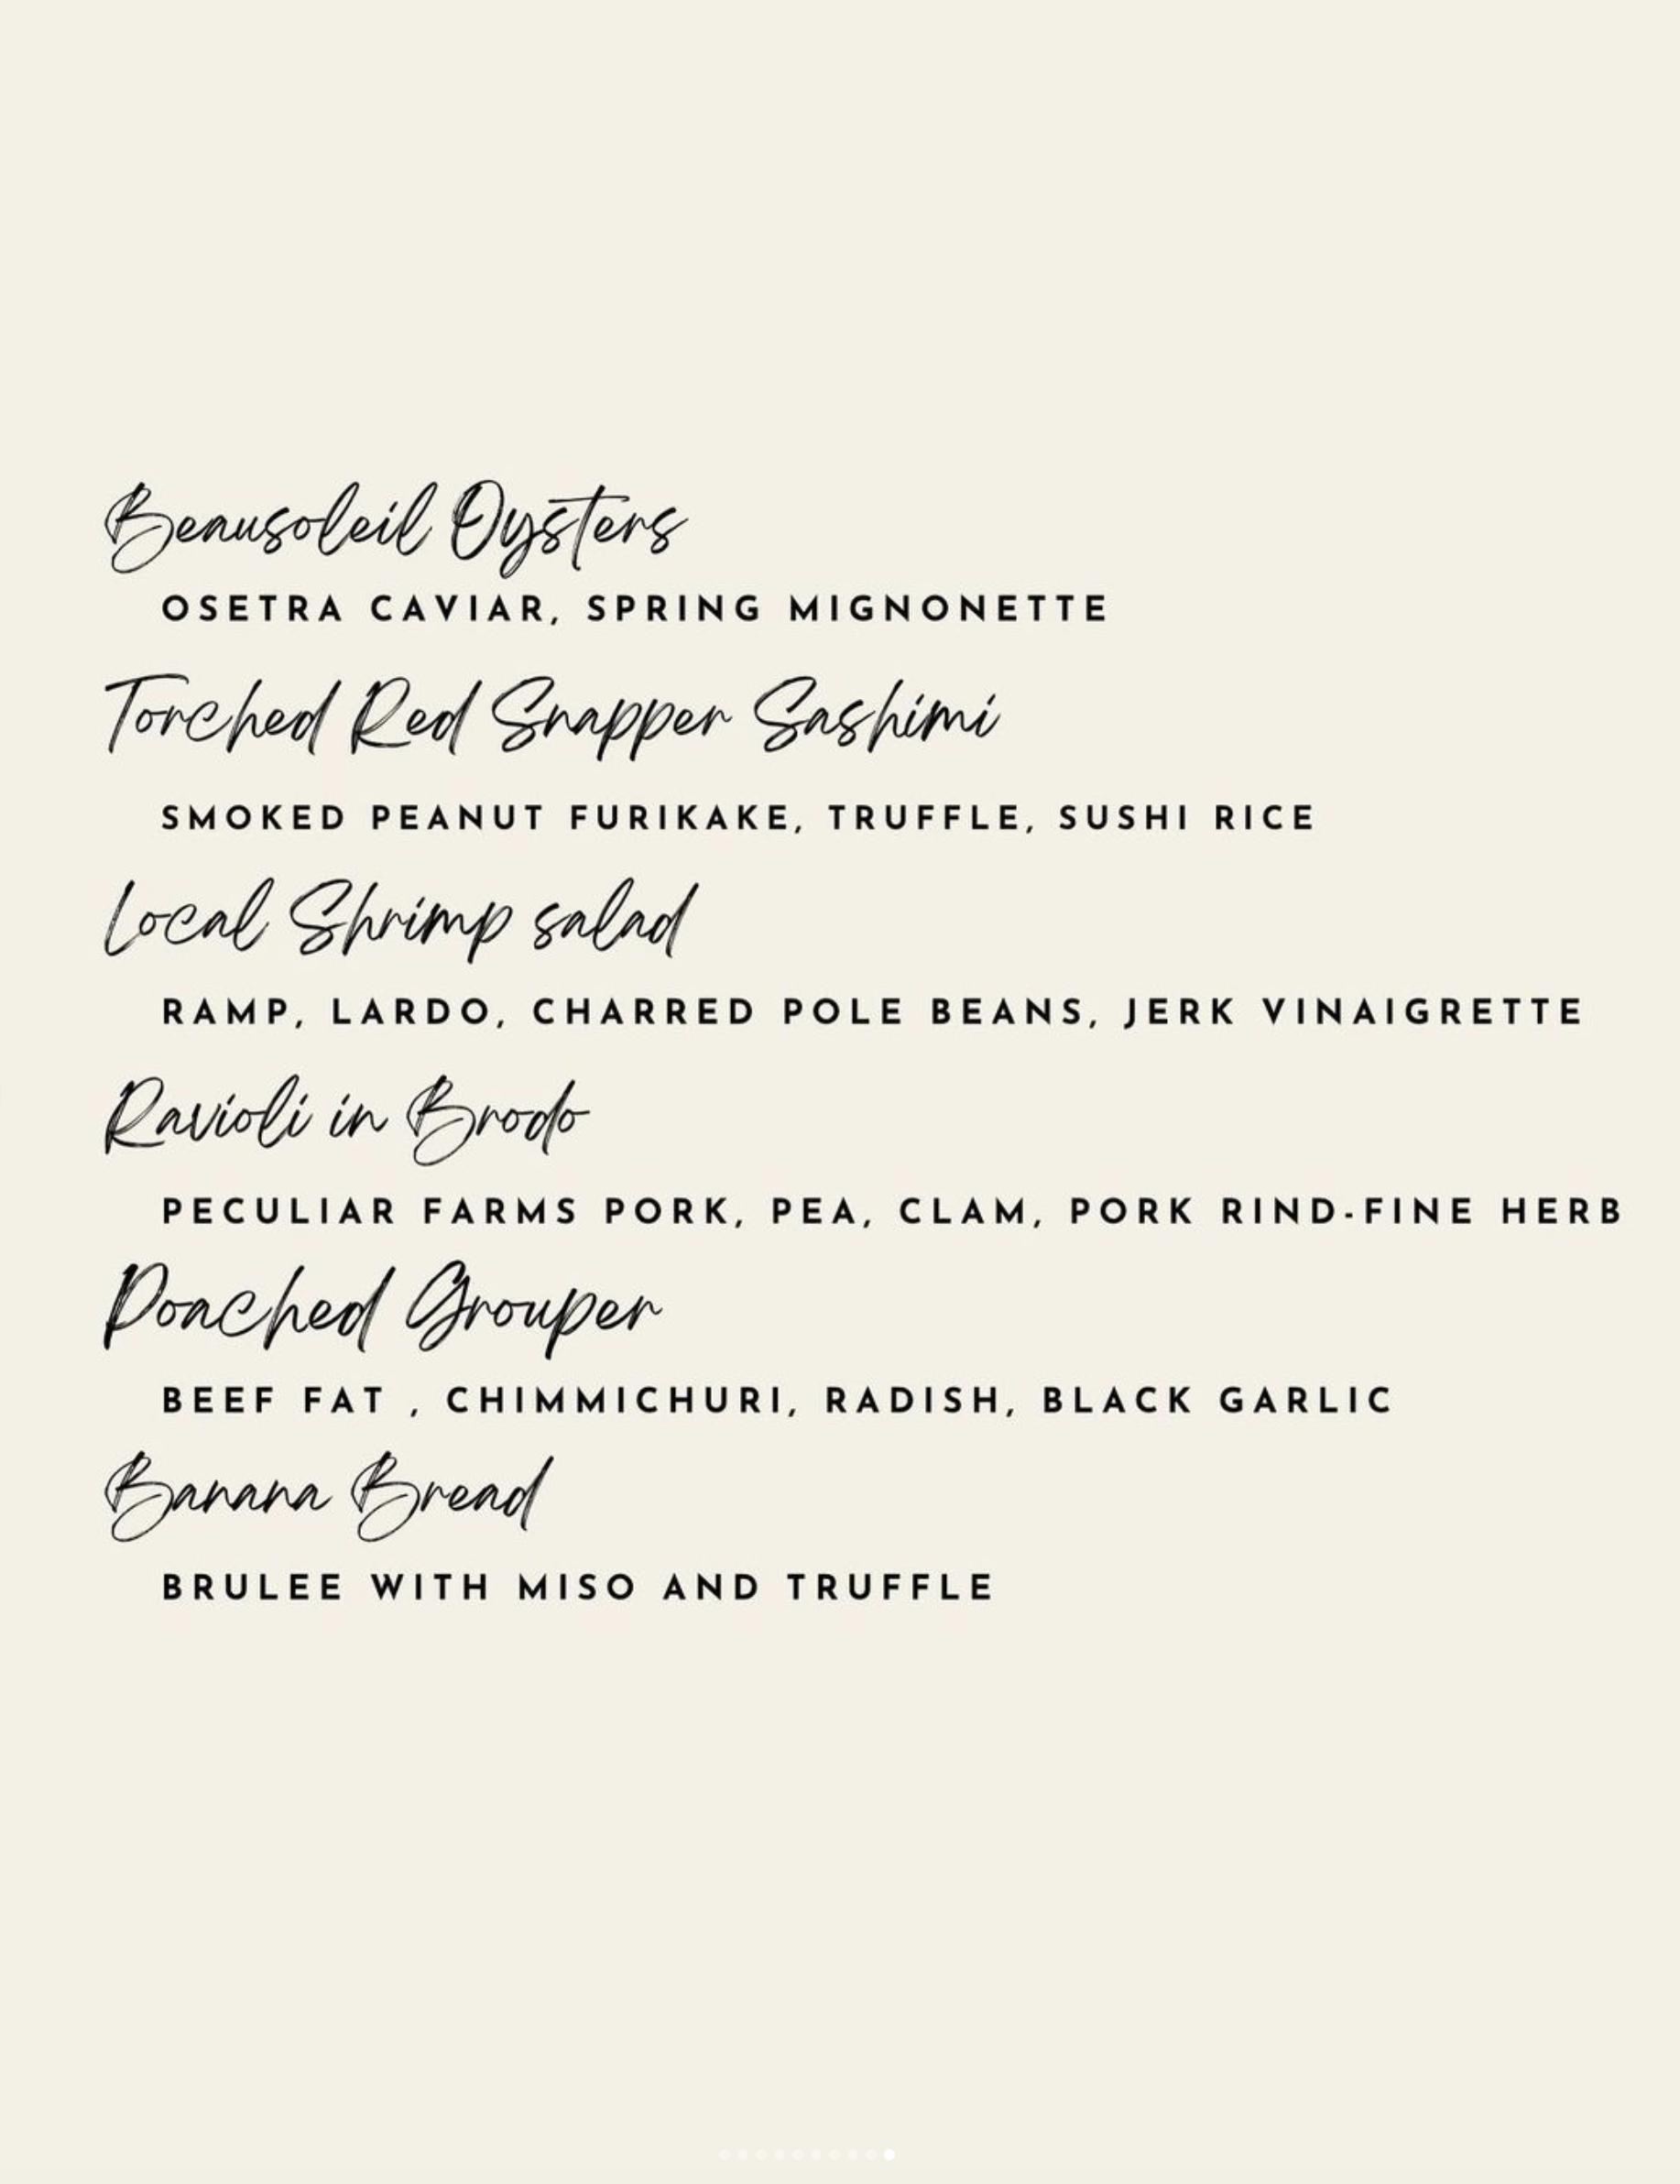 Beausoleil Oysters
OSETRA CAVIAR, SPRING MIGNONETTE
Torched Red Snapper Sashimi
SMOKED PEANUT FURIKAKE, TRUFFLE, SUSHI RICE
Local Shrimp salad
RAMP, LARDO, CHARRED POLE BEANS, JERK VINAIGRETTE
Ravioli in Brodo
PECULIAR FARMS PORK, PEA, CLAM, PORK RIND-FINE HERB
Poached Grouper
BEEF FAT , CHIMMICHURI, RADISH, BLACK GARLIC
Banana Bread
BRULEE WITH MISO AND TRUFFLE